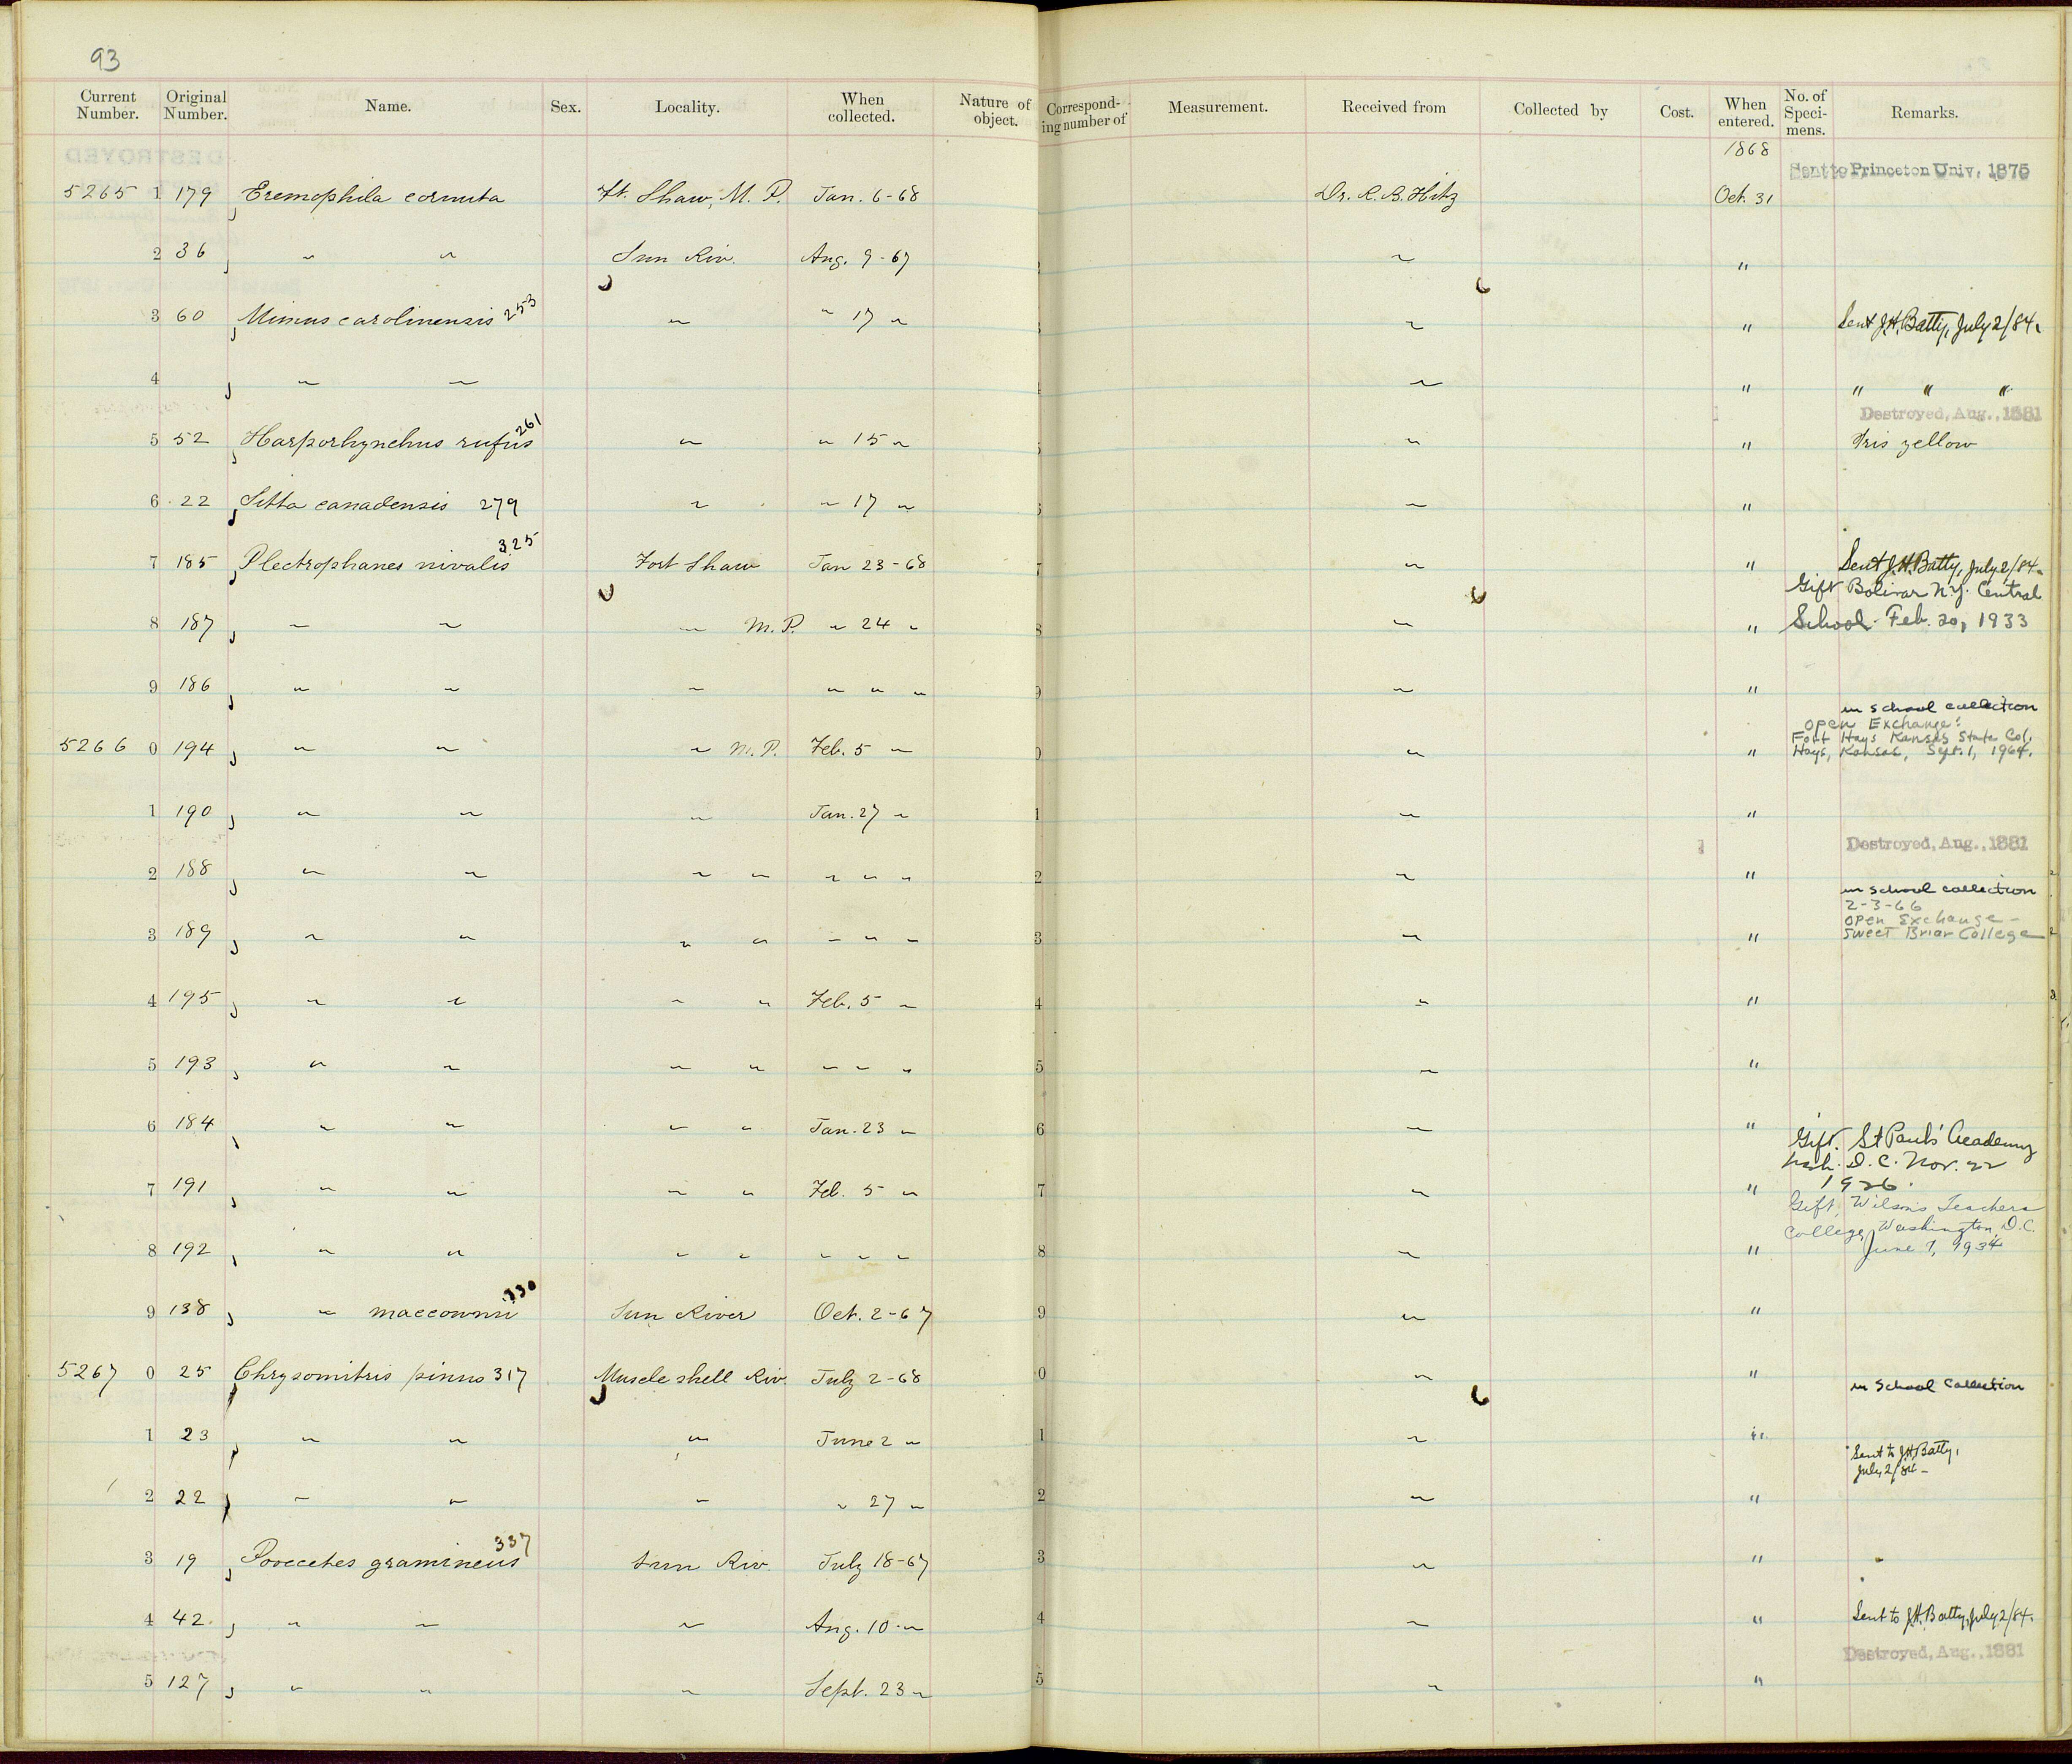 93
Current Number. Original Number. Name. Sex. Locality. When collected. Nature of object. Correspond-ing number of Measurement. Received from Collected by Cost. When entered. No. of Speci-mens. Remarks.
1868
Sent to Princeton Univ, 1875
5265 1 179 Eremophila cornuta Ft. Shaw, M. P. Jan. 6-68 Dr. R. B. Hitz Oct. 31
2 36 " " Sun Riv. Aug. 9-67 " "
3 60 Mimus carolinensis 253 " " 17 " " " Sent J.H. Batty, July 2/84.
4 " " " " " " "
Destroyed, Aug., 1881
5 52 Harporhynchus rufus 261 " " 15 " " " Iris yellow
6 22 Sitta canadensis 279 " " 17 " " "
7 185 Plectrophanes nivalis 325 Fort Shaw Jan 23-68 " " Sent J.H. Batty, July 2/84.
Gift Bolivar N.Y. Central
8 187 " " " M. P. " 24 " " " School Feb. 20, 1933
9 186 " " " " " " " "
in school collection
Open Exchange:
Fort Hays Kansas State Col.
5266 0 194 " " " M. P. Feb. 5 " " " Hays, Kansas, Sept. 1, 1964.
1 190 " " " Jan. 27 " " "
Destroyed, Aug., 1881
2 188 " " " " " " " " "
in school collection
2-3-66
Open Exchange -
3 189 " " " " " " " " " Sweet Briar College
4 195 " " " " Feb. 5 " " "
5 193 " " " " " " " " "
6 184 " " " " Jan. 23 " " "
Gift. St Paul's Academy
Wash. D. C. Nov. 22
7 191 " " " " Feb. 5 " " " 1926.
Gift, Wilson's Teachers
College, Washington, D.C.
8 192 " " " " " " " " " June 7, 1934
9 138 " maccownii 330 Sun River Oct. 2-67 " "
5267 0 25 Chrysomitris pinus 317 Muscleshell Riv. July 2-68 " "
in School Collection
1 23 " " " June 2 " " "
Sent to J.H. Batty,
July 2/84 -
2 22 " " " " 27 " " "
3 19 Poocetes gramineus 337 Sun Riv. July 18-67 " "
4 42 " " " Aug. 10 " " " Sent to J.H. Batty, July 2/84.
Destroyed, Aug., 1881
5 127 " " " Sept. 23 " " "